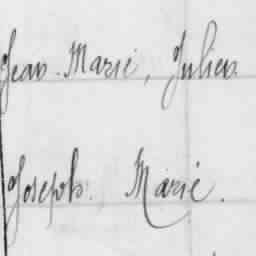 Jean-Marie, Julien
Joseph. Marie.